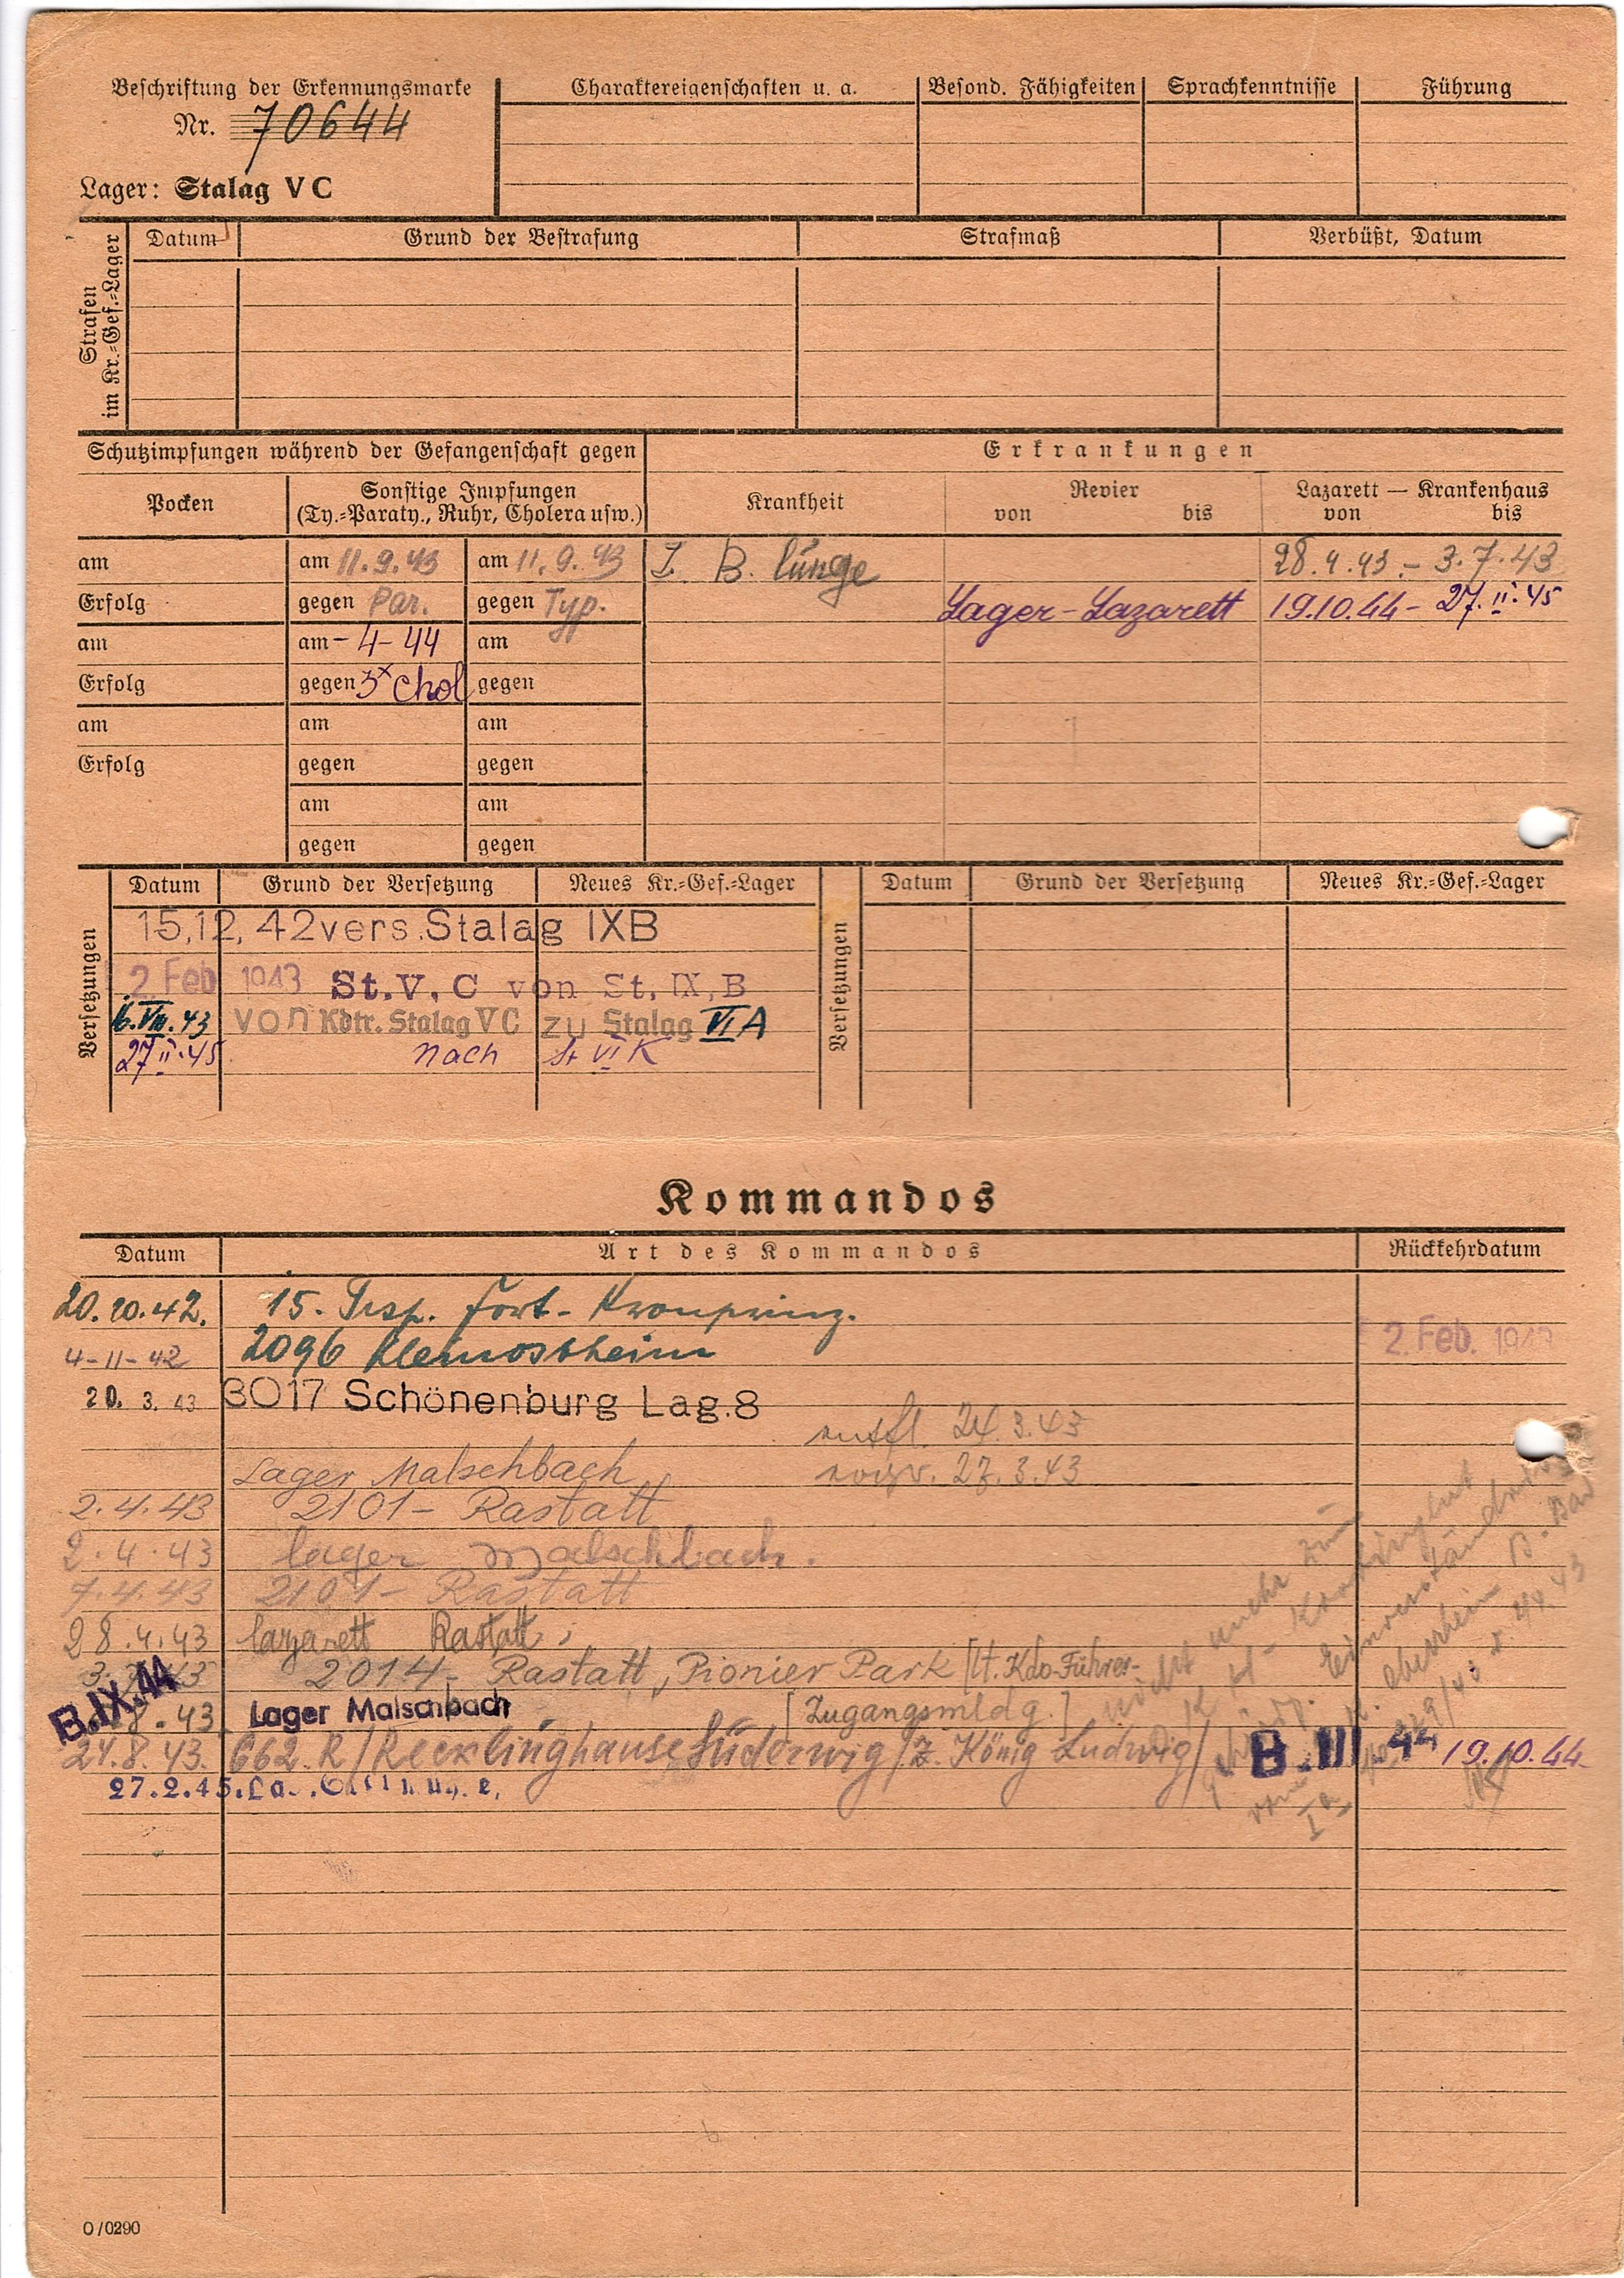 Beschriftung der Erkennungsmarke
Nr. 70644
Lager: Stalag V C
Charaktereigenschaften u. a. Besond. Fähigkeiten Sprachkenntnisse Führung
Strafen
im Kr.=Gef.=Lager
Datum Grund der Bestrafung Strafmaß Verbüßt, Datum
Schutzimpfungen während der Gefangenschaft gegen
Erkrankungen
Pocken
Sonstige Impfungen
(Ty.=Paraty., Ruhr, Cholera usw.)
Krankheit
Revier
von bis
Lazarett — Krankenhaus
von bis
am am 11.9.43 am 11.9.43 I. B. lunge 28.4.43 - 3.7.43
Erfolg gegen Par. gegen Typ. Lager-Lazarett 19.10.44 - 27.II.45
am am - 4 - 44 am
Erfolg gegen 3x Chol gegen
am am am
Erfolg gegen gegen
am am
gegen gegen
Versetzungen
Datum Grund der Versetzung Neues Kr.=Gef.=Lager
15,12,42 vers. Stalag IXB
2. Feb 1943 St. V. C von St. IX, B
6.VIII.43 von Kdtr. Stalag V C zu Stalag VI A
27.II.45 nach St VI K
Versetzungen
Datum Grund der Versetzung Neues Kr.=Gef.=Lager
Kommandos
Datum Art des Kommandos Rückkehrdatum
20.10.42. 15. Trsp. Fort-Kronprinz.
4-11-42 2096 Kleinostheim 2. Feb. 1943
20. 3. 43 3017 Schönenburg Lag. 8
entfl. 24.3.43
Lager Malschbach 27.3.43
2.4.43 2101 - Rastatt
2.4.43 lager Malschbach.
7.4.43 2101 - Rastatt
28.4.43 lazarett Rastatt;
3.7.43 2014 - Rastatt, Pionier Park [lt. Kdo-Führer-
B.IX.44
8.43 Lager Malschbach [Zugangsmldg.]
24.8.43. 662. R/Recklinghause Süderwig/Z. König Ludwig/ B.III.44 19.10.44
27.2.45.
nicht mehr zum
O/0290